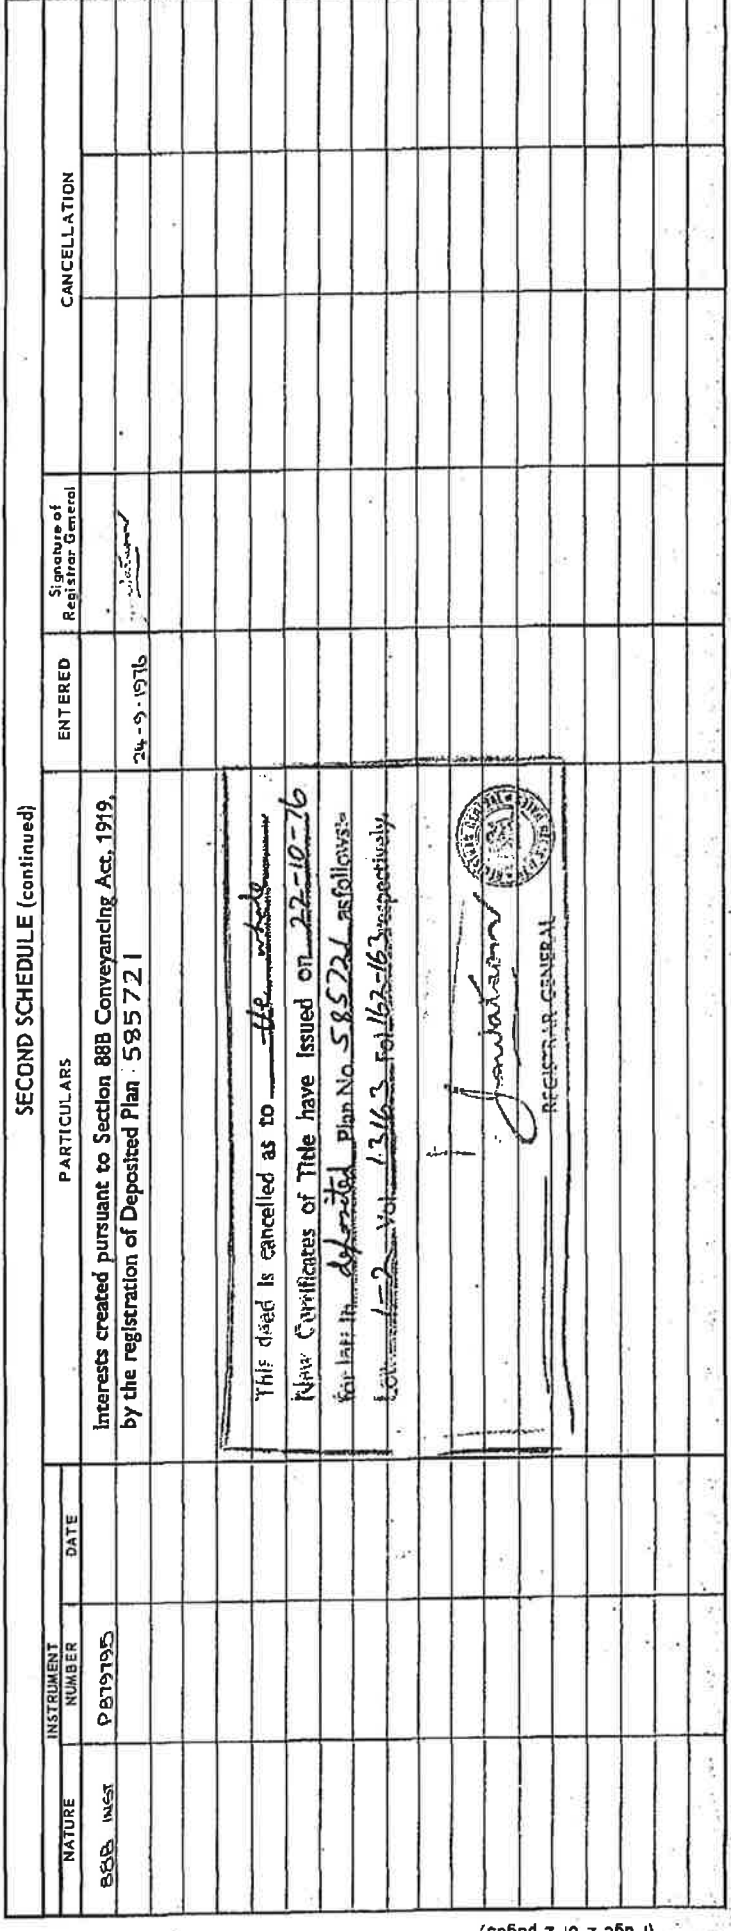 SECOND SCHEDULE (continued)
INSTRUMENT
NATURE NUMBER DATE PARTICULARS ENTERED Signature of Registrar General CANCELLATION
88B INST P879795 Interests created pursuant to Section 88B Conveyancing Act, 1919,
by the registration of Deposited Plan 585721 24-9-1976
This deed is cancelled as to the whole
New Certificates of Title have issued on 22-10-76
for lots in deposited Plan No. 585721 as follows:-
Lots 1-2 Vol. 13163 Fol 162-163 respectively.
REGISTRAR GENERAL
(Page 2 of 2 pages)